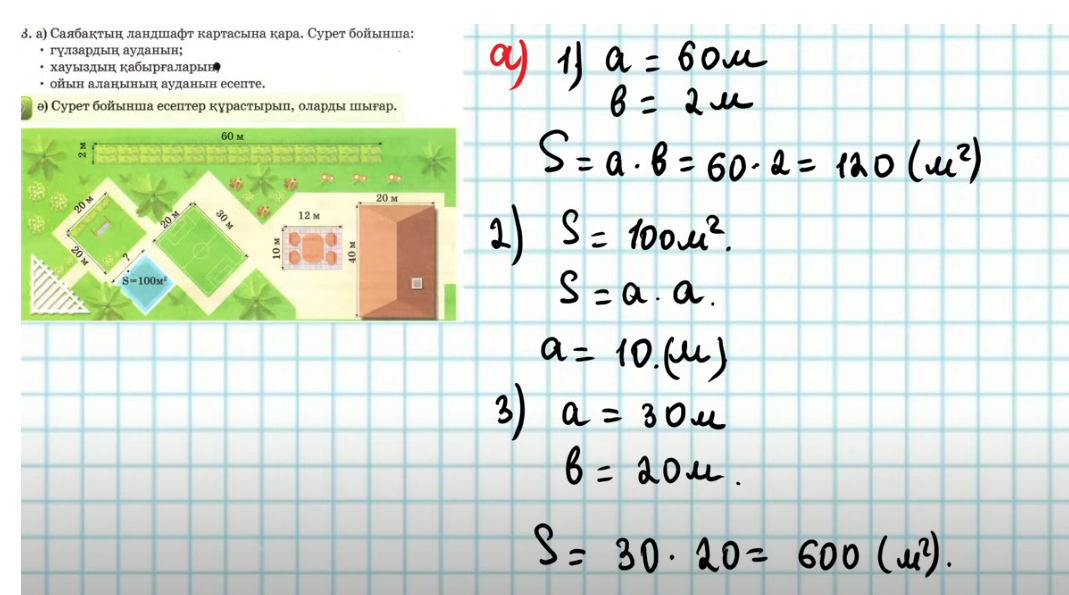 3. а) Саябақтың ландшафт картасына қара. Сурет бойынша:
• гүлзардың ауданын;
• хауыздың қабырғаларын;
• ойын алаңының ауданын есепте.
ә) Сурет бойынша есептер құрастырып, оларды шығар.
60 м
2 м
20 м
20 м
20 м
30 м
?
S=100м²
12 м
10 м
20 м
40 м
а) 1) a = 60м
в = 2м
S = a · в = 60 · 2 = 120 (м²)
2) S = 100м².
S = a · a.
a = 10.(м)
3) a = 30м
в = 20м.
S = 30 · 20 = 600 (м²).